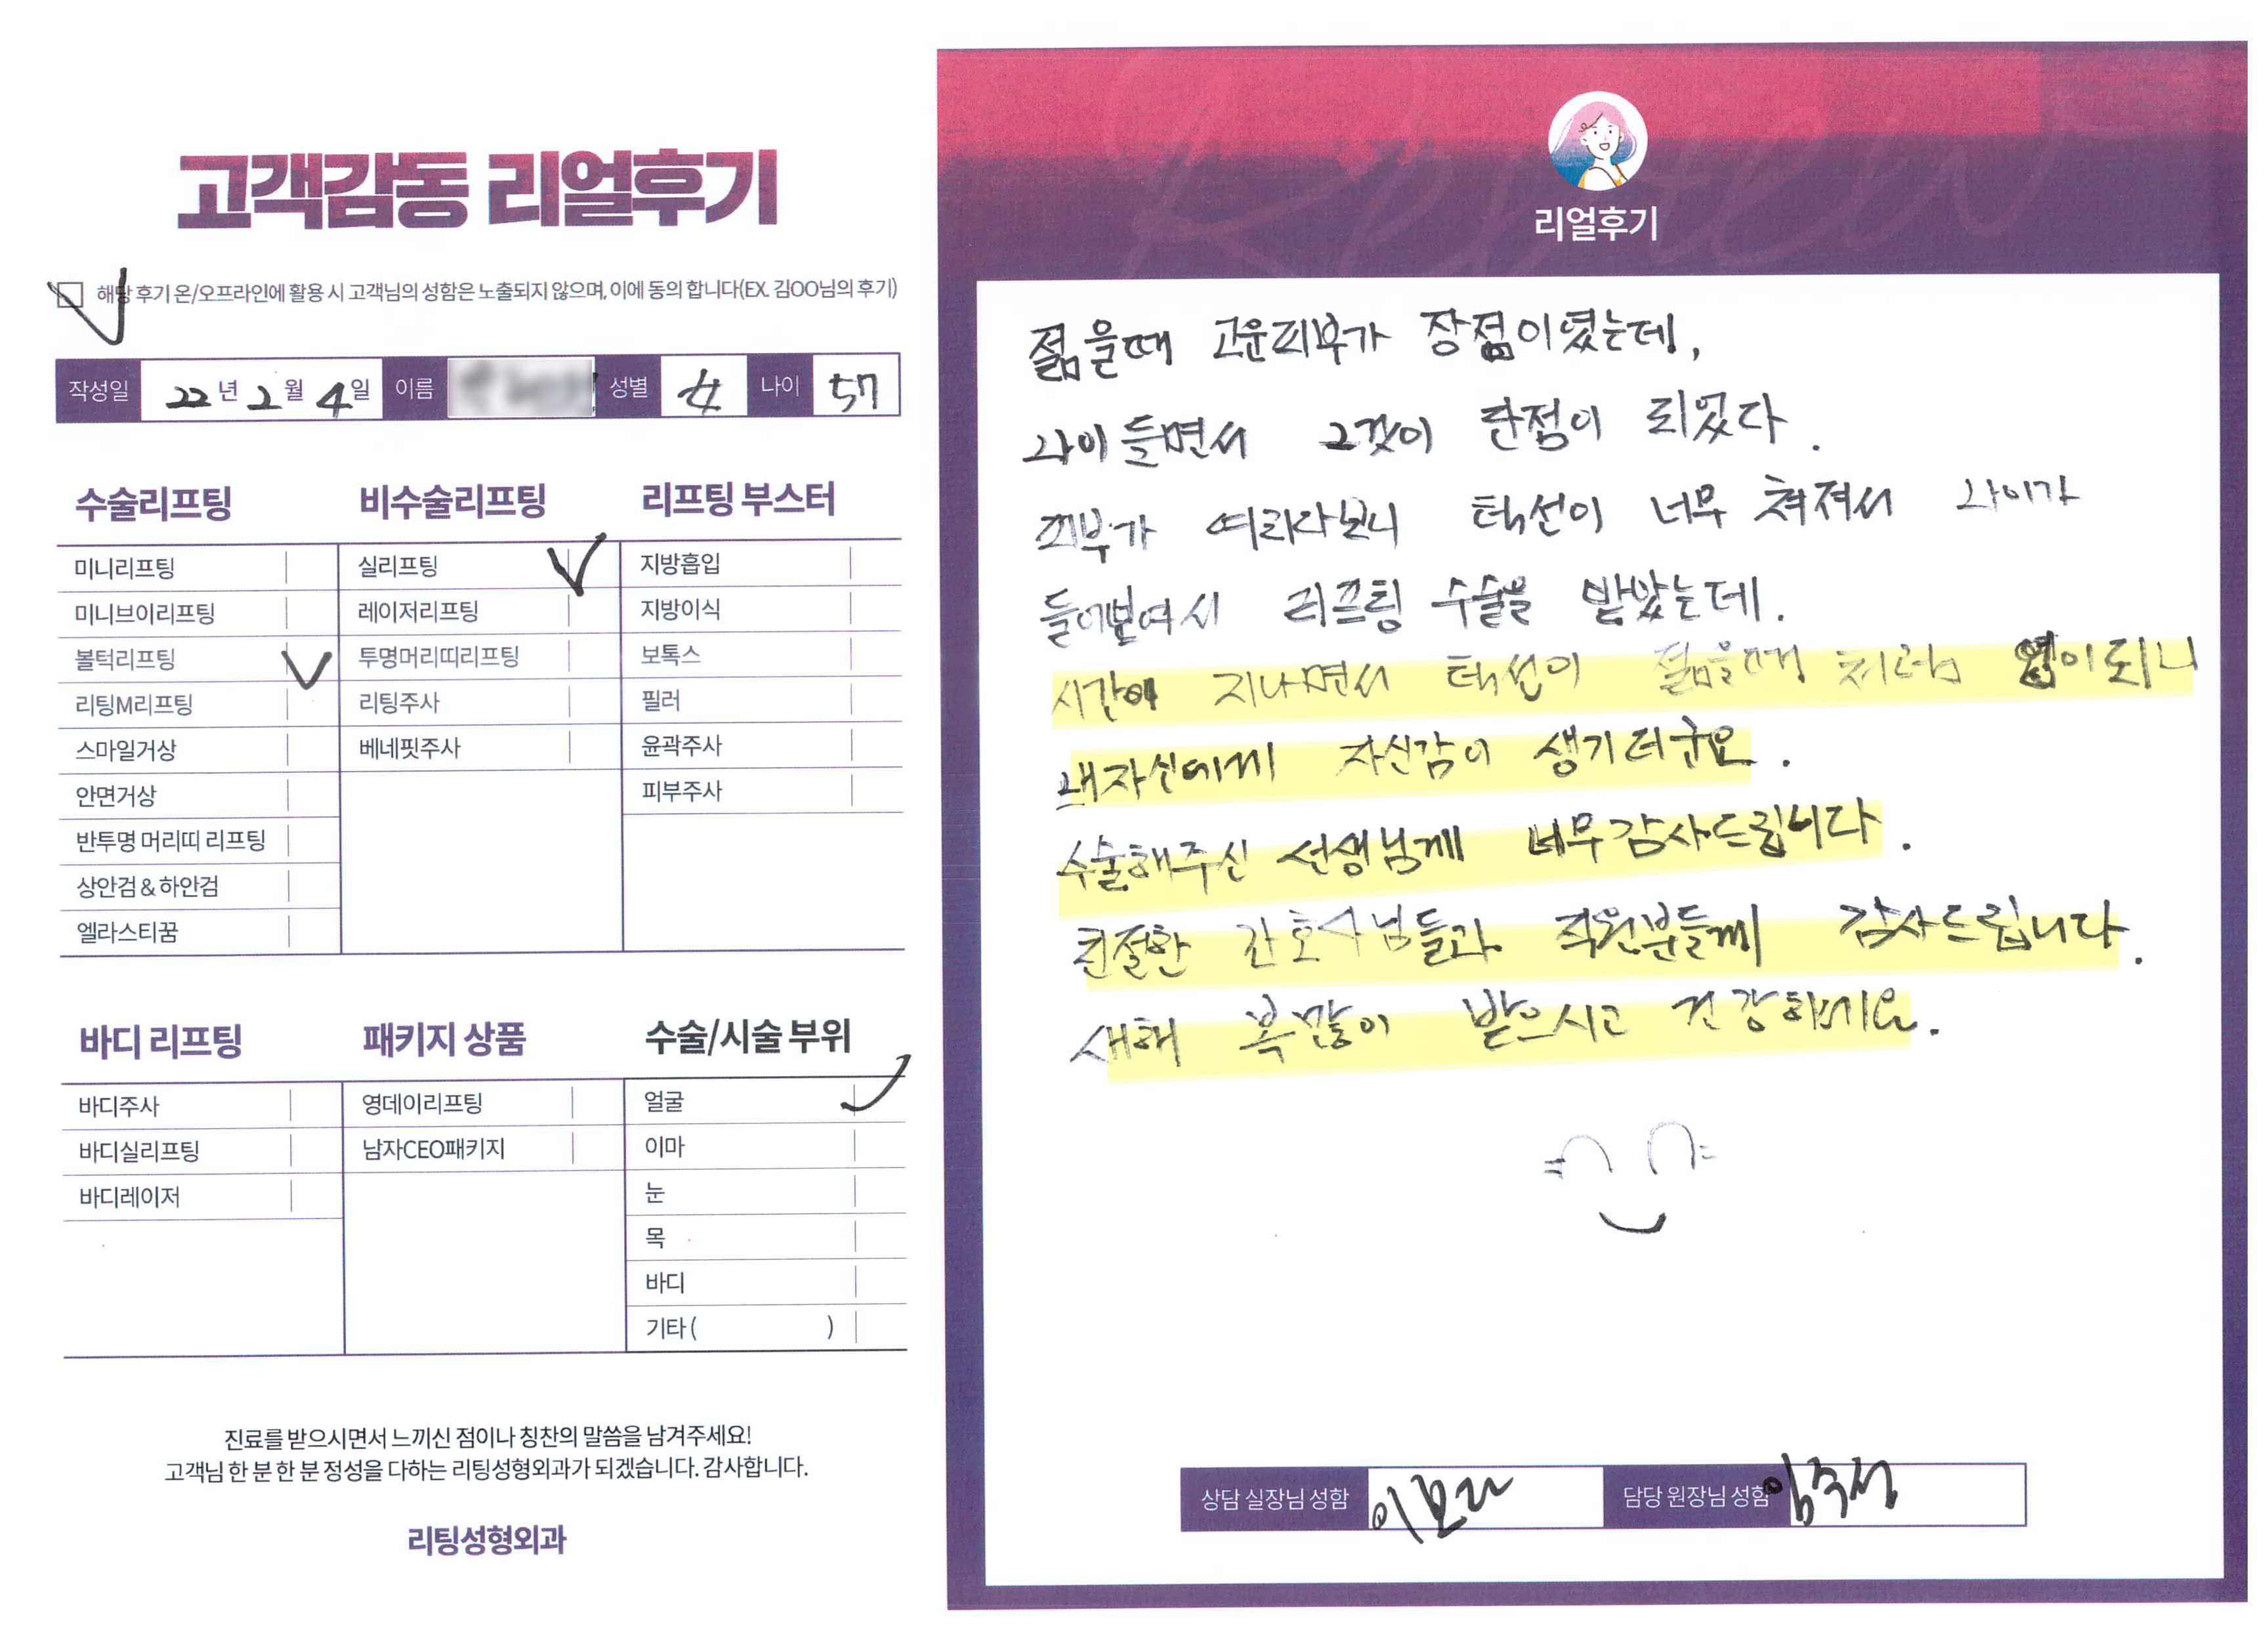 고객감동 리얼후기
해당 후기 온/오프라인에 활용 시 고객님의 성함은 노출되지 않으며, 이에 동의 합니다(EX. 김OO님의 후기)
작성일 22년 2월 4일 이름 성별 여 나이 57
수술리프팅
미니리프팅
미니브이리프팅
볼턱리프팅
리팅M리프팅
스마일거상
안면거상
반투명 머리띠 리프팅
상안검 & 하안검
엘라스티꿈
비수술리프팅
실리프팅
레이저리프팅
투명머리띠리프팅
리팅주사
베네핏주사
리프팅 부스터
지방흡입
지방이식
보톡스
필러
윤곽주사
피부주사
바디 리프팅
바디주사
바디실리프팅
바디레이저
패키지 상품
영데이리프팅
남자CEO패키지
수술/시술 부위
얼굴
이마
눈
목
바디
기타 ( )
진료를 받으시면서 느끼신 점이나 칭찬의 말씀을 남겨주세요!
고객님 한 분 한 분 정성을 다하는 리팅성형외과가 되겠습니다. 감사합니다.
리팅성형외과
리얼후기
젊을때 고운피부가 장점이였는데,
나이들면서 그것이 단점이 되었다.
피부가 여리다보니 턱선이 너무 쳐져서 나이가
들어보여서 리프팅 수술을 받았는데.
시간이 지나면서 턱선이 젊을때 처럼 이되니
내자신에게 자신감이 생기더군요.
수술해주신 선생님께 너무감사드립니다.
친절한 간호사님들과 직원분들께 감사드립니다.
새해 복많이 받으시고 건강하세요.
상담 실장님 성함 이보라
담당 원장님 성함